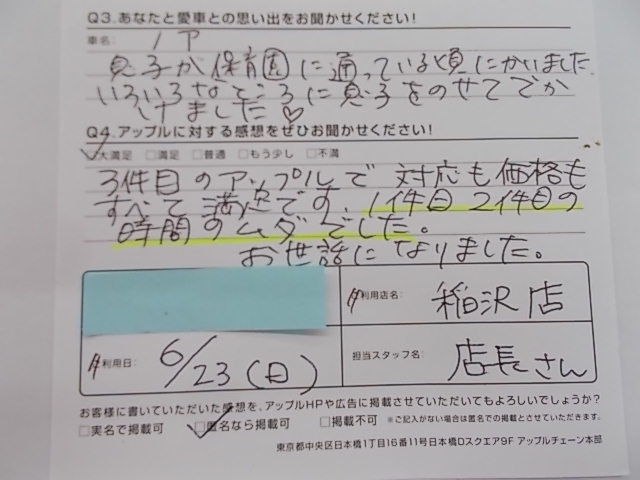 Q3.あなたと愛車との思い出をお聞かせください!
車名: ノア
息子が保育園に通っている頃にかいました
いろいろなところに息子をのせてでか
けました♡
Q4.アップルに対する感想をぜひお聞かせください!
☑大満足 □満足 □普通 □もう少し □不満
3件目のアップルで対応も価格も
すべて満点です。1件目2件目の
時間のムダでした。
お世話になりました。
ご利用店名: 稲沢店
ご利用日: 6/23(日)
担当スタッフ名: 店長さん
お客様に書いていただいた感想を、アップルHPや広告に掲載させていただいてもよろしいでしょうか?
□実名で掲載可 ☑匿名なら掲載可 □掲載不可 ※ご記入がない場合は匿名での掲載とさせていただきます。
東京都中央区日本橋1丁目16番11号日本橋Dスクエア9F アップルチェーン本部